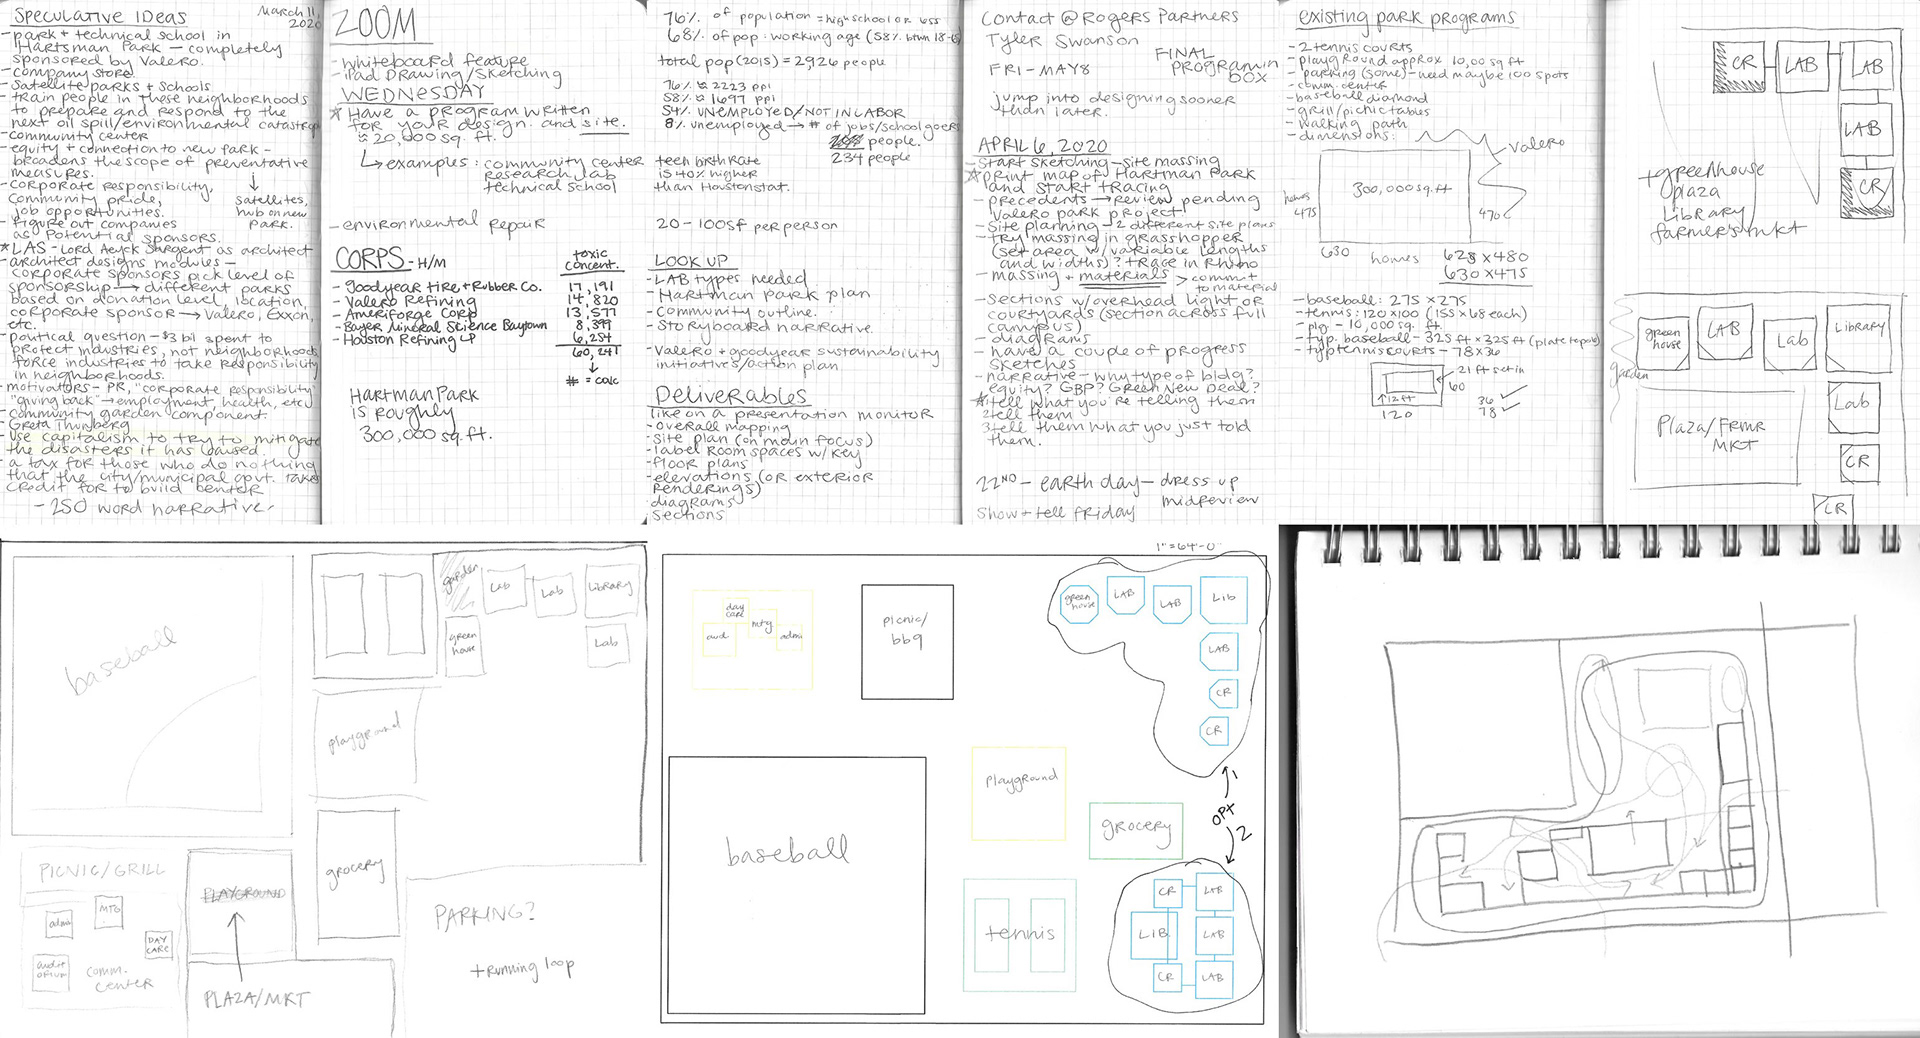 Speculative Ideas
March 11, 2020
- park + technical school in
Hartsman Park - completely
sponsored by Valero.
- company store
- satellite parks + schools
- train people in these neighborhoods
to prepare and respond to the
next oil spill/environmental catastrophe
- community center
- equity + connection to new park -
broadens the scope of preventative
measures.
- corporate responsibility,
community pride,
job opportunities.
satellites,
hub on new
park.
- Figure out companies
as potential sponsors.
* LAS - Lord Aeck Sargent as architect
- architect designs modules -
corporate sponsors pick level of
sponsorship → different parks
based on donation level, location,
corporate sponsor → Valero, Exxon,
etc.
- political question - $3 bil spent to
protect industries, not neighborhoods
force industries to take responsibility
in neighborhoods.
- motivators - PR, "corporate responsibility"
"giving back" → employment, health, etc
- community garden component.
- Greta Thunberg
- use capitalism to try to mitigate
the disasters it has caused.
- a tax for those who do nothing
that the city/municipal govt. takes
credit for to build center
- 250 word narrative
ZOOM
- whiteboard feature
- iPad Drawing/Sketching
WEDNESDAY
* Have a program written
for your design. and site.
≈ 20,000 sq. ft.
→ examples: community center
research lab
technical school
- environmental repair
CORPS - H/M
toxic
concent.
- Goodyear Tire + Rubber Co. 17,191
- Valero Refining 14,820
- Ameriforge Corp 13,577
- Bayer Mineral Science Baytown 8,399
- Houston Refining LP 6,254
60,241
# = calc
Hartman Park
is roughly
300,000 sq. ft.
76% of population = high school or less
68% of pop: working age (58% btwn 18-65)
total pop (2015) = 2,926 people
76% ≈ 2223 ppl
58% ≈ 1697 ppl
54% UNEMPLOYED/NOT IN LABOR
8% unemployed → # of jobs/school goers
people.
234 people
teen birth rate
is 40% higher
than Houston stat.
20-100sf per person
LOOK UP
- LAB types needed
- Hartman Park plan
- community outline.
- storyboard narrative.
- Valero + goodyear sustainability
initiatives/action plan
Deliverables
like on a presentation monitor
- overall mapping
- site plan (on main focus)
- label room spaces w/key
- floor plans
- elevations (or exterior
renderings)
- diagrams
- sections
Contact @ Rogers Partners
Tyler Swanson
FRI - MAY 8
FINAL
programin
box
jump into designing sooner
than later.
APRIL 6, 2020
- start sketching - site massing
* print map of Hartman Park
and start tracing
- precedents → review pending
Valero park project
- site planning - 2 different site plans
- try massing in grasshopper
(set area w/variable lengths
and widths)? trace in Rhino
- massing + materials > commit
to material
- sections w/overhead light or
courtyards (section across full
campus)
- diagrams
- have a couple of progress
sketches
- narrative - why type of bldg?
equity? GBP? Green New Deal?
* tell what you're telling them
2 tell them
3 tell them what you just told
them.
22ND - earth day - dress up
midreview
show + tell friday
existing park programs
- 2 tennis courts
- playground approx 10,00 sq ft
- parking (some) - need maybe 100 spots
- comm. center
- baseball diamond
- grill/picnic tables
- walking path
- dimensions:
Valero
300,000 sq. ft
homes
475
470
630
homes
628 x 480
630 x 475
- baseball: 275 x 275
- tennis: 120 x 100 (155 x 68 each)
- plg. - 10,000 sq. ft.
- typ. baseball - 325 ft x 325 ft (plate to pole)
- typ tennis courts - 78 x 36
21 ft set in
60
12 ft
120
36
78
CR
LAB
LAB
LAB
CR
+ greenhouse
plaza
library
farmer's mkt
green
house
LAB
Lab
Library
garden
Plaza/FRMR
MKT
Lab
CR
CR
baseball
garden
Lab
Lab
Library
green
house
Lab
playground
grocery
PICNIC/GRILL
admin
MTG
DAY
CARE
auditorium
comm.
center
PLAYGROUND
PLAZA/MKT
PARKING?
+ running loop
1" = 64'-0"
day
care
mtg
aud
admin
picnic/
bbq
green
house
LAB
LAB
Lib
LAB
CR
CR
1
OPT
2
playground
grocery
baseball
tennis
CR
LAB
LIB
LAB
CR
LAB